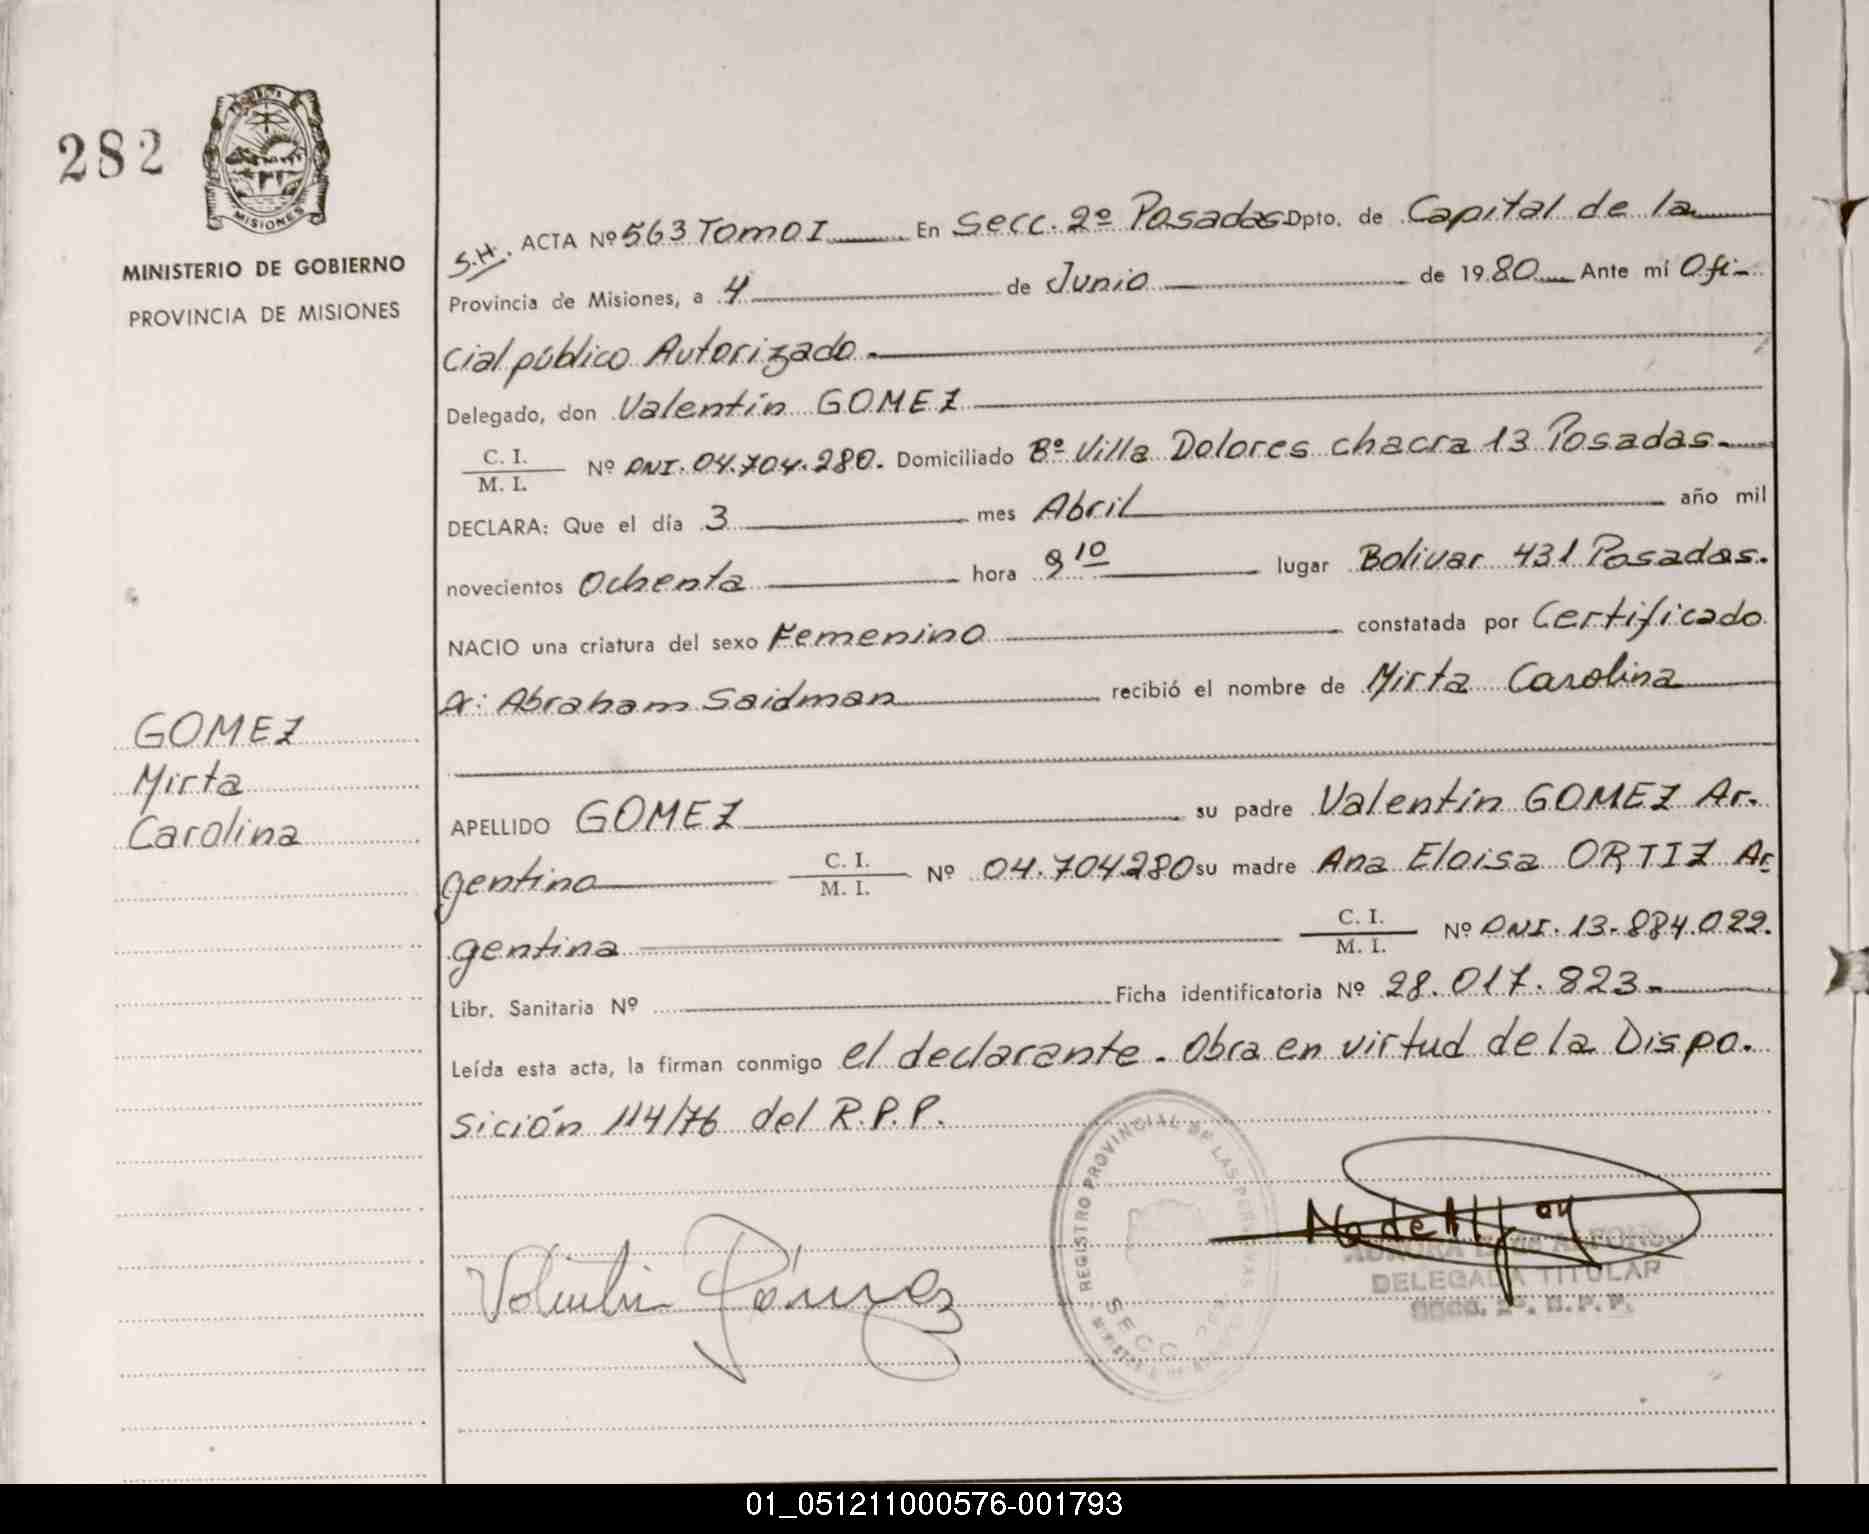 282
MISIONES
MINISTERIO DE GOBIERNO
PROVINCIA DE MISIONES
GOMEZ
Mirta
Carolina
S.H. ACTA Nº 563 Tomo I En Secc. 2º Posadas Dpto. de Capital de la
Provincia de Misiones, a 4 de Junio de 1980 Ante mí Ofi-
cial público Autorizado.
Delegado, don Valentín GOMEZ
C. I.
M. I. Nº DNI. 04.704.280. Domiciliado Bº Villa Dolores chacra 13 Posadas.
DECLARA: Que el día 3 mes Abril año mil
novecientos Ochenta hora 9 10 lugar Bolivar 431 Posadas.
NACIO una criatura del sexo Femenino constatada por Certificado
Dr: Abraham Saidman recibió el nombre de Mirta Carolina
APELLIDO GOMEZ su padre Valentín GOMEZ Ar.
gentino C. I.
M. I. Nº 04.704.280 su madre Ana Eloisa ORTIZ Ar
gentina C. I.
M. I. Nº DNI. 13.884.022.
Libr. Sanitaria Nº Ficha identificatoria Nº 28.017.823.
Leída esta acta, la firman conmigo el declarante. Obra en virtud de la Dispo.
sición 114/76 del R.P.P.
REGISTRO PROVINCIAL DE LAS PERSONAS
SECC
Valentin Gómez
DELEGADA TITULAR
SECC. 2º. R. P. P.
01_051211000576-001793